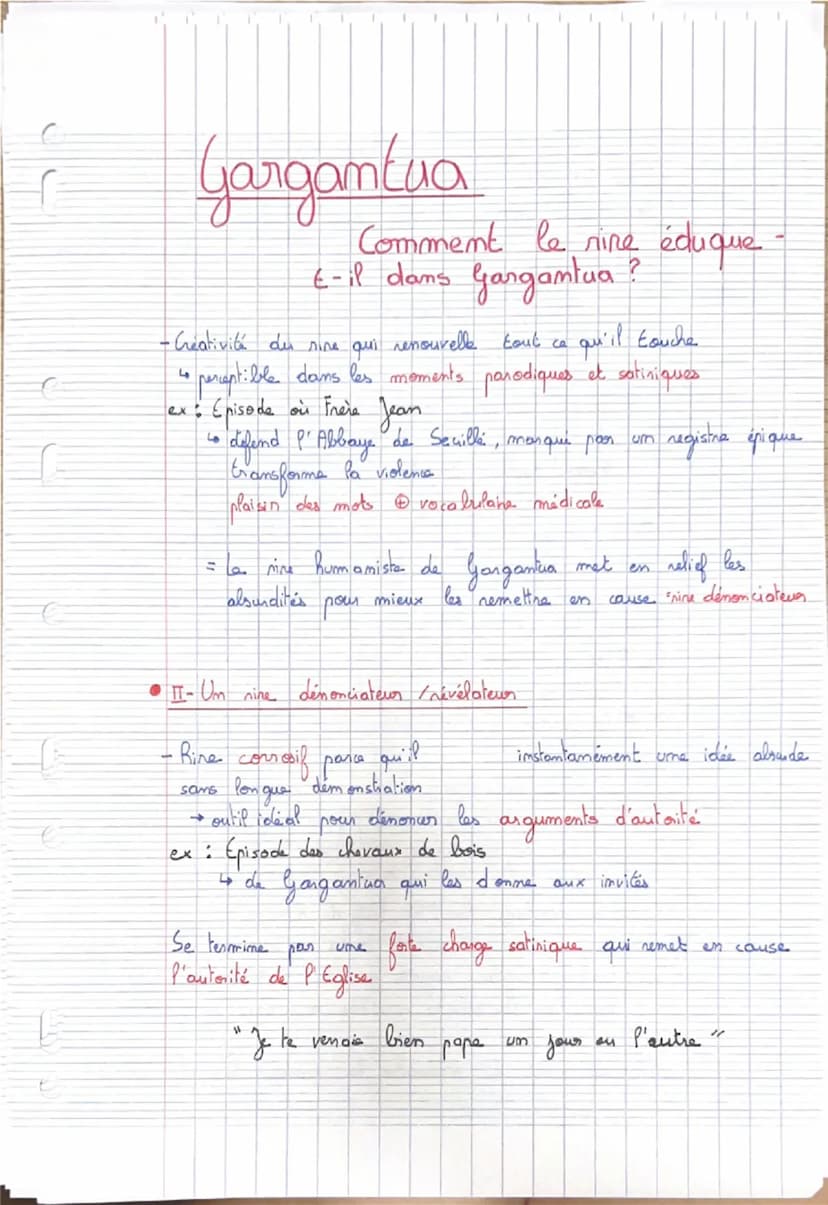 Gargantua
Comment le rire éduque-
t-il dans Gargantua ?
- Créativité du rire qui renouvelle tout ce qu'il touche
↳ perceptible dans les moments parodiques et satiriques
ex : Episode où Frère Jean
↳ défend l'Abbaye de Seuillé, marqué par un registre épique
transforme la violence
plaisir des mots ⊕ vocabulaire médicale
= Le rire humaniste de Gargantua met en relief les
absurdités pour mieux les remettre en cause =rire dénonciateur
• II- Un rire dénonciateur /révélateur
- Rire corrosif parce qu'il instantanément une idée absurde
sans longue démonstration
→ outil idéal pour dénoncer les arguments d'autorité
ex : Episode des chevaux de bois
↳ de Gargantua qui les donne aux invités
Se termine par une forte charge satirique qui remet en cause
l'autorité de l'Eglise
"Je te verrais bien pape un jour ou l'autre"